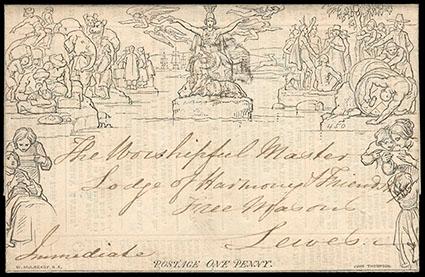 450
The Worshipful Master
Lodge of Harmony & Friends
Free Masons
Lewes
Immediate
POSTAGE ONE PENNY.
W. MULREADY. R.A.
JOHN THOMPSON.